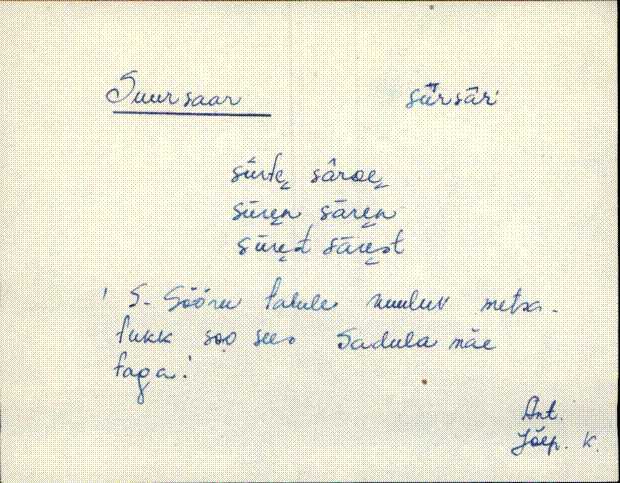 Suursaar sūrsār
sūrte̮ sârde̮
sūre̮n sāre̮n
sūre̮st sāre̮st
S. Sööru talule kuuluv metsa-
tukk soo sees Sadula mäe
taga!
Ant.
Jõep. K.